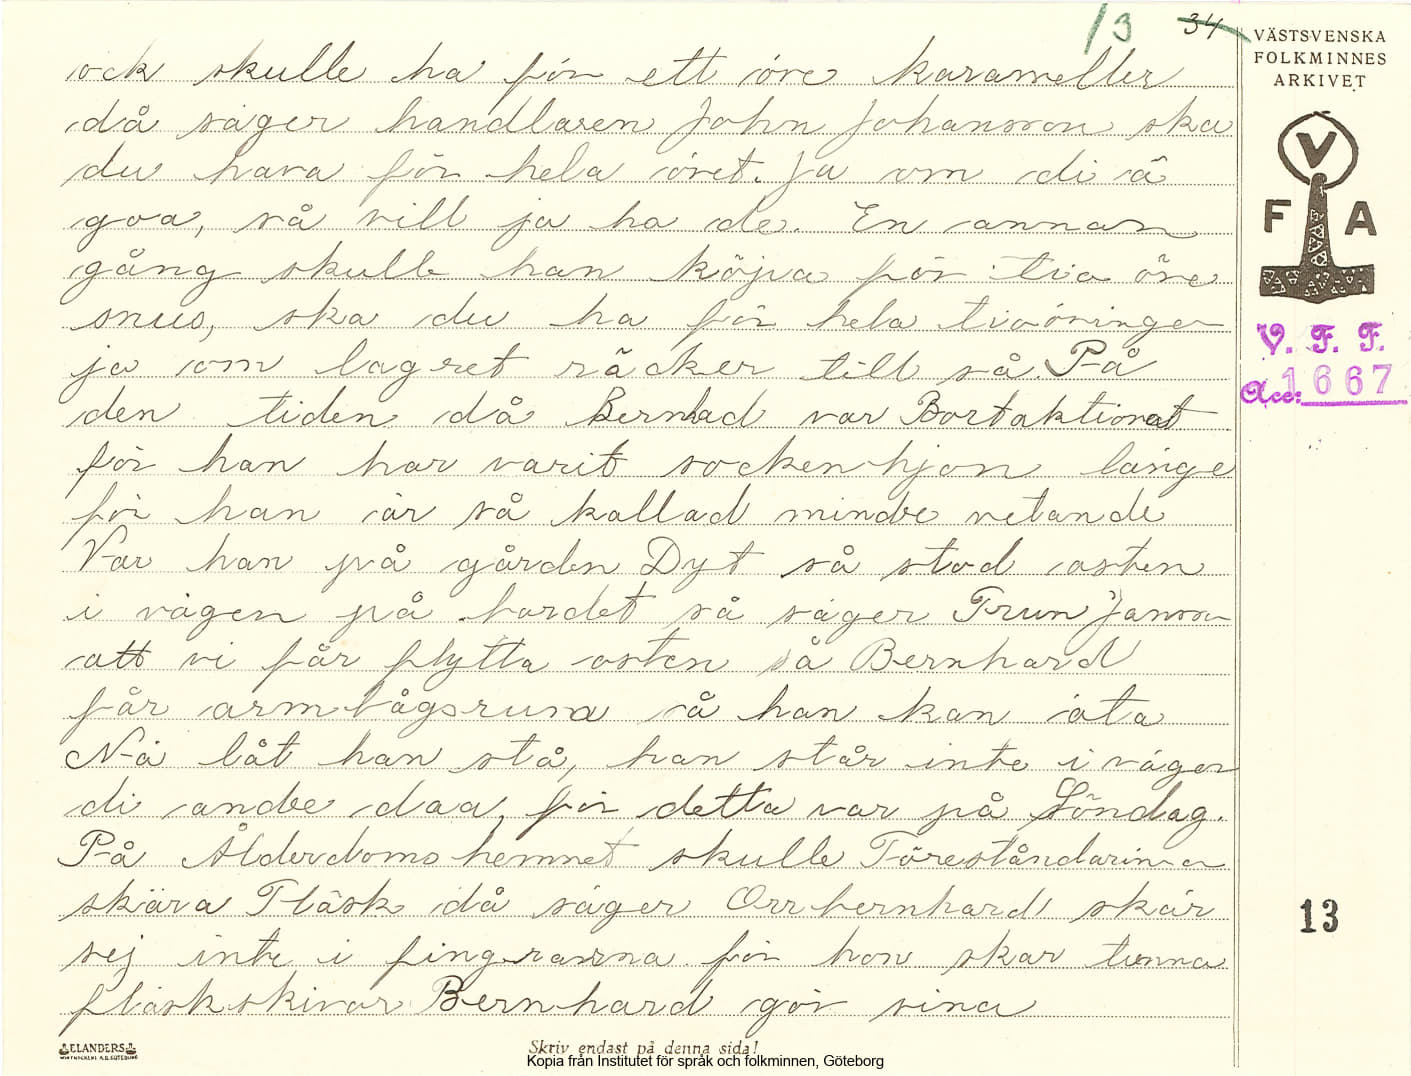 13 34
VÄSTSVENSKA
FOLKMINNES
ARKIVET
V
F A
V. F. F.
Acc: 1667
ock skulle ha för ett öre karameller
då säger handlaren John Johansson ska
du hava för hela öret. Ja om di ä
goa, så vill ja ha de. En annan
gång skulle han köjva för tio öre
snus, ska du ha för hela tioöringen
ja om lagret räcker till så. På
den tiden då Bernhad var Bortaktionat
för han har varit sockenhjon länge
för han är så kallad mindre vetande
Var han på gården Dyt så stod osten
i vägen på bordet så säger Frun Jansson
att vi får flytta osten så Bernhard
får armbågsrum så han kan äta
Nä låt han stå, han står inte i vägen
di andre daa, för detta var på Söndag.
På Ålderdomshemmet skulle Föreståndarinna
skära Fläsk då säger Orrbernhard skär
sej inte i fingrarna för hon skar tunna
fläskskivor Bernhard gör sina
13
ELANDERS
Skriv endast på denna sida!
Kopia från Institutet för språk och folkminnen, Göteborg